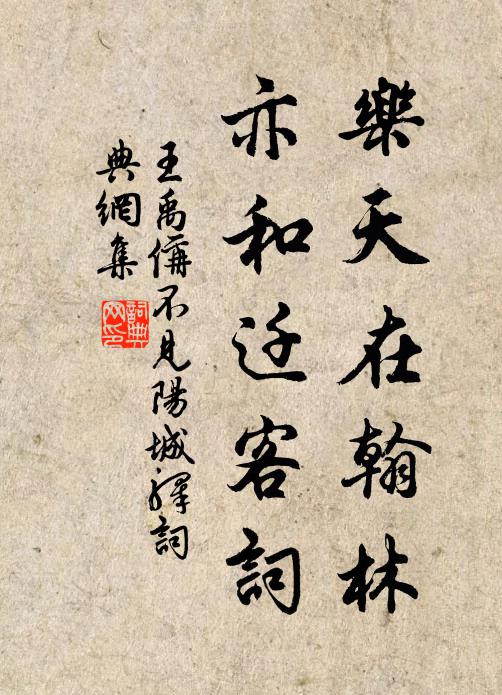 樂天在翰林
亦和迁客詞
王禹偁不見陽城驛詞
典網集
詞典
网印